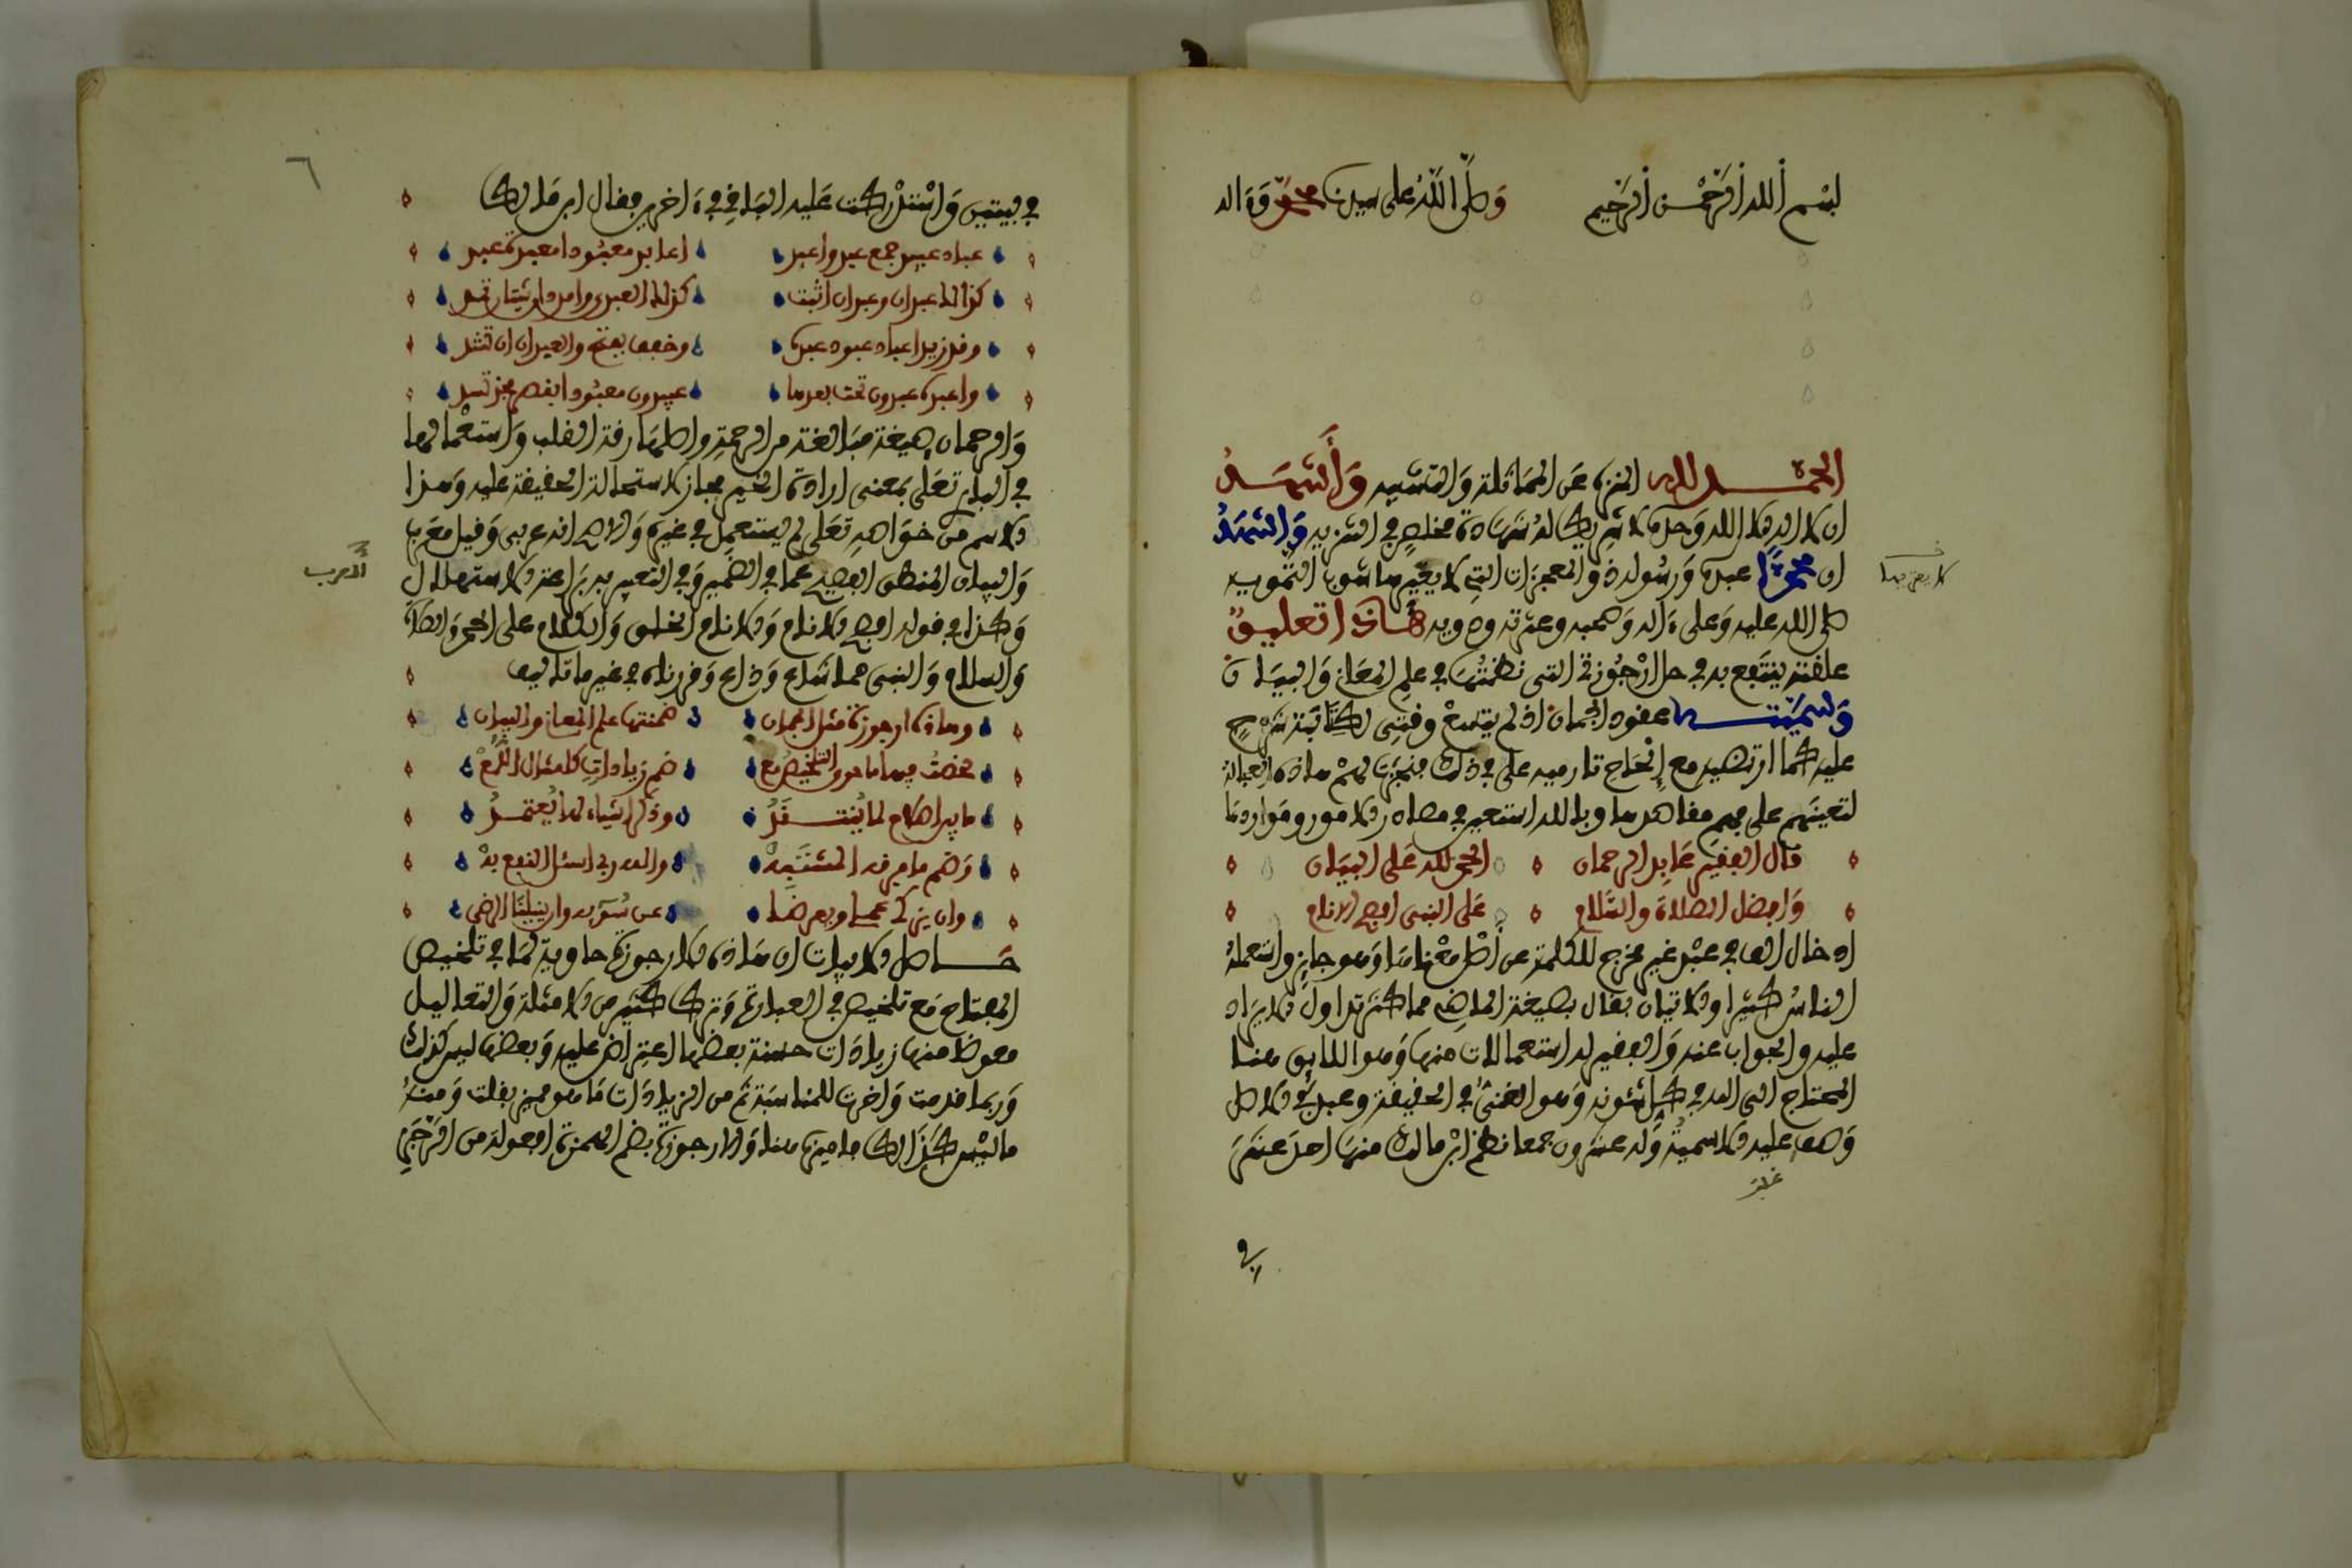 بسم الله الرحمن الرحيم وصلى الله على سيدنا محمد وءاله
الحمد لله المنزه عن المماثلة والتشبيه وأشهد
ان لا اله الا الله وحده لا شريك له شهادة مخلص في التنزيه واشهد
ان محمدا عبده ورسوله ذو المعجزات التي لا يغيرها شوب التمويه
صلى الله عليه وعلى ءاله وصحبه وعترته وذويه هاذا تعليق
علقته ينتفع به في حل ارجوزتي التي نظمتها في علم المعان والبيان
وسميتها عقود الجمان اذ لم يتسع وقتى لكتابة شرح
عليه كما ارتضيه مع إلحاح قارميه على في ذلك فنجزت لهم هاذه العجالة
لتعينهم على فهم مقاصدها وبالله استعين في مصادر الامور ومواردها
قال الفقير عابد الرحمان الحمد لله على البيان
وافضل الصلاة والسلام على النبى افصح الانام
ادخال الفاء في غير مخرج للكلمة عن أصل معناها وهو جايز واستعمله
الناس كثيرا والاتيان بقال بصيغة الماضي مما كثر تداول الايراد
عليه والجواب عنه والفقير له استعمالات منها وهو اللايق هنا
المحتاج الى الله في كل شئونه وهو الغنى في الحقيقة وعبد في الاصل
وصف عليه الاسمية وله عشرون جمعا نظم ابن مالك منها احد عشر
لا يعتريها
غلبت
في
٦
في بيتين واستدركت عليه الباقي في ءاخرين فقال ابن مالك
عباد عبيد جمع عبد واعبد اعابد معبودا معبدة عبد
كذالك عبدان وعبدان اثبت كذاك العبدى وامدد ان شئت ان تمد
وقد زيد اعباد عبود عبدة وخفف بفتح والعبدان ان تشد
واعبدة عبدون تمت بعدها عبيدون معبودا بقصر فخذ تسد
والرحمان صيغة مبالغة من الرحمة واصلها رقة القلب واستعمالها
في الباري تعلى بمعنى ارادة الخير مجاز لاستحالة الحقيقة عليه وهذا
الاسم من خواصه تعلى لم يستعمل في غيره والاصح انه عربى وقيل معرب
والبيان المنطق الفصيح عما في الضمير وفي التعبير به براعة الاستهلال
وكذا في قوله افصح الانام والانام الخلق والكلام على الحمد والصلاة
والسلام والنبى مما شاع وذاع وقررناه في غير ما تاليف
وهاذه ارجوزة مثل الجمان ضمنتها علم المعان والبيان
لخصت فيها ما حوى التلخيص مع ضم زيادات كامثال اللمع
ما بين اصلاح لما ينتقد وذكر اشياء لها يعتمد
وضم ما فرقه للمشتبه والله ربى اسئل النفع به
وان يزكى عملى ويعرضا عن سوءه وان ينيلنا الرضى
حاصل الابيات ان هاذه الارجوزة حاوية لما في تلخيص
المفتاح مع تلخيص في العبارة وترك كثير من الامثلة والتعاليل
معوضا منها زيادات حسنة بعضها اعتراض عليه وبعضها ليس كذلك
وربما قدمت واخرت للمناسبة ثم من الزيادات ما هو مميز بقلت ومنه
ما ليس كذالك فاميزه هنا والارجوزة بضم الهمزة افعولة من الرجز
المعرب